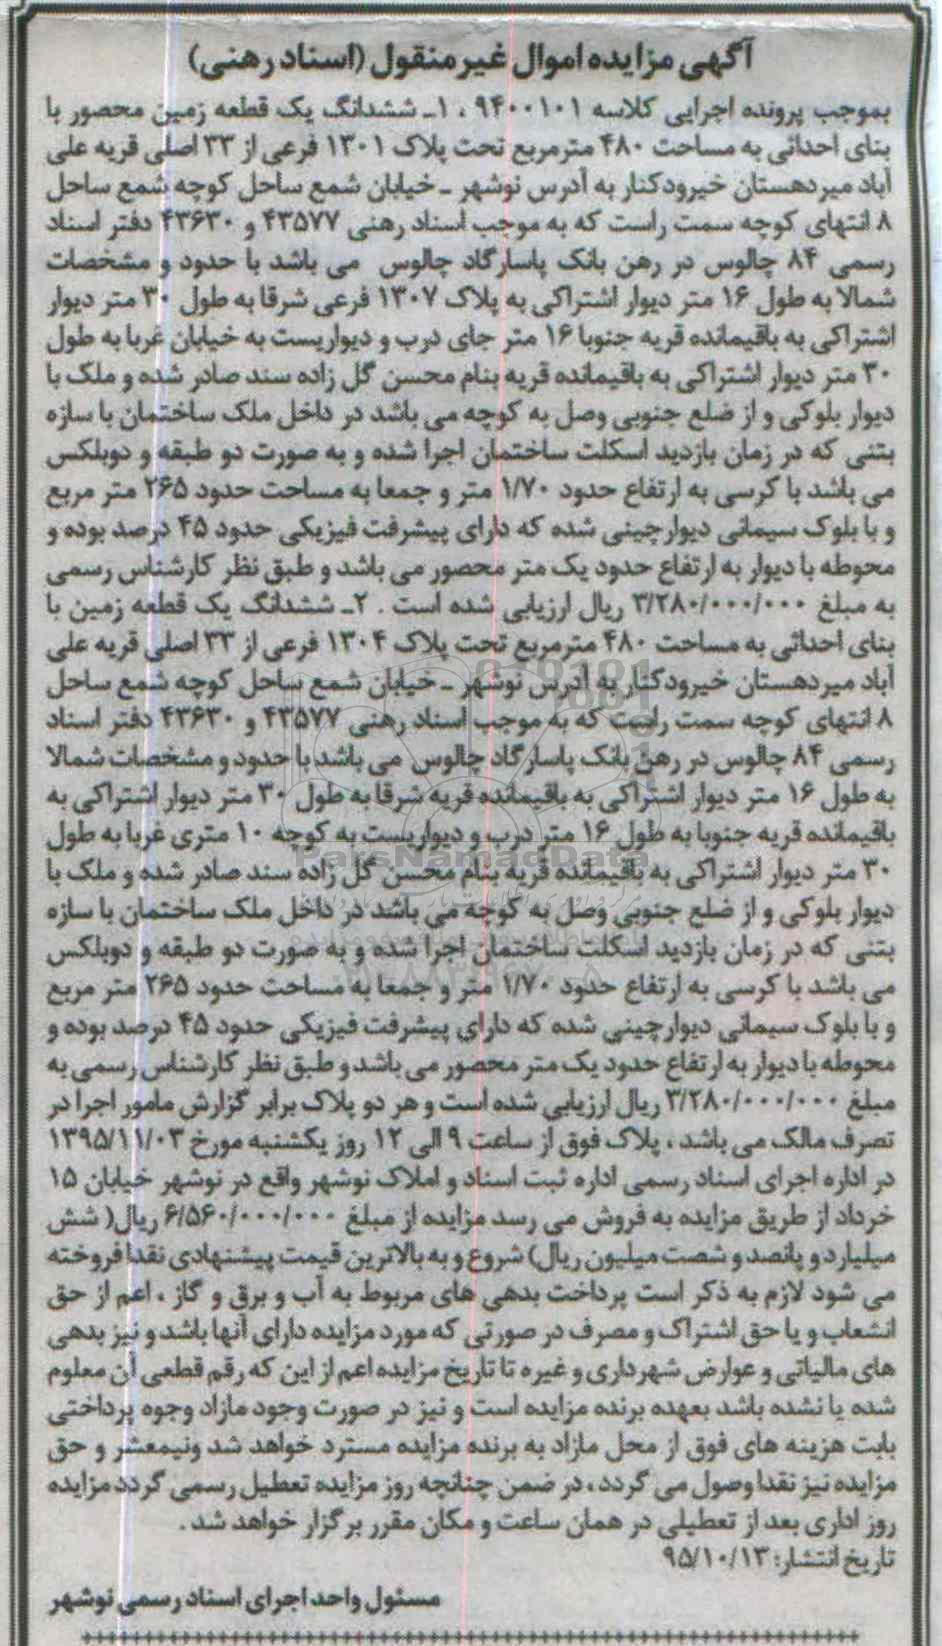 آگهی مزایده اموال غیر منقول (اسناد رهنی)
بموجب پرونده اجرایی کلاسه ۹۴۰۰۱۰۱ ، ۱ـ ششدانگ یک قطعه زمین محصور با
بنای احداثی به مساحت ۴۸۰ مترمربع تحت پلاک ۱۳۰۱ فرعی از ۳۳ اصلی قریه علی
آباد میر دهستان خیرودکنار به آدرس نوشهر ـ خیابان شمع ساحل کوچه شمع ساحل
۸ انتهای کوچه سمت راست که به موجب اسناد رهنی ۴۳۵۷۷ و ۴۳۶۳۰ دفتر اسناد
رسمی ۸۴ چالوس در رهن بانک پاسارگاد چالوس می باشد با حدود و مشخصات
شمالا به طول ۱۶ متر دیوار اشتراکی به پلاک ۱۳۰۷ فرعی شرقا به طول ۳۰ متر دیوار
اشتراکی به باقیمانده قریه جنوبا ۱۶ متر جای درب و دیواریست به خیابان غربا به طول
۳۰ متر دیوار اشتراکی به باقیمانده قریه بنام محسن گل زاده سند صادر شده و ملک با
دیوار بلوکی و از ضلع جنوبی وصل به کوچه می باشد در داخل ملک ساختمان با سازه
بتنی که در زمان بازدید اسکلت ساختمان اجرا شده و به صورت دو طبقه و دوبلکس
می باشد با کرسی به ارتفاع حدود ۱/۷۰ متر و جمعا به مساحت حدود ۲۶۵ متر مربع
و با بلوک سیمانی دیوارچینی شده که دارای پیشرفت فیزیکی حدود ۴۵ درصد بوده و
محوطه با دیوار به ارتفاع حدود یک متر محصور می باشد و طبق نظر کارشناس رسمی
به مبلغ ۳/۲۸۰/۰۰۰/۰۰۰ ریال ارزیابی شده است . ۲ـ ششدانگ یک قطعه زمین با
بنای احداثی به مساحت ۴۸۰ مترمربع تحت پلاک ۱۳۰۴ فرعی از ۳۳ اصلی قریه علی
آباد میر دهستان خیرودکنار به آدرس نوشهر ـ خیابان شمع ساحل کوچه شمع ساحل
۸ انتهای کوچه سمت راست که به موجب اسناد رهنی ۴۳۵۷۷ و ۴۳۶۳۰ دفتر اسناد
رسمی ۸۴ چالوس در رهن بانک پاسارگاد چالوس می باشد با حدود و مشخصات شمالا
به طول ۱۶ متر دیوار اشتراکی به باقیمانده قریه شرقا به طول ۳۰ متر دیوار اشتراکی به
باقیمانده قریه جنوبا به طول ۱۶ متر درب و دیواریست به کوچه ۱۰ متری غربا به طول
۳۰ متر دیوار اشتراکی به باقیمانده قریه بنام محسن گل زاده سند صادر شده و ملک با
دیوار بلوکی و از ضلع جنوبی وصل به کوچه می باشد در داخل ملک ساختمان با سازه
بتنی که در زمان بازدید اسکلت ساختمان اجرا شده و به صورت دو طبقه و دوبلکس
می باشد با کرسی به ارتفاع حدود ۱/۷۰ متر و جمعا به مساحت حدود ۲۶۵ متر مربع
و با بلوک سیمانی دیوارچینی شده که دارای پیشرفت فیزیکی حدود ۴۵ درصد بوده و
محوطه با دیوار به ارتفاع حدود یک متر محصور می باشد و طبق نظر کارشناس رسمی به
مبلغ ۳/۲۸۰/۰۰۰/۰۰۰ ریال ارزیابی شده است و هر دو پلاک برابر گزارش مامور اجرا در
تصرف مالک می باشد ، پلاک فوق از ساعت ۹ الی ۱۲ روز یکشنبه مورخ ۱۳۹۵/۱۱/۰۳
در اداره اجرای اسناد رسمی اداره ثبت اسناد و املاک نوشهر واقع در نوشهر خیابان ۱۵
خرداد از طریق مزایده به فروش می رسد مزایده از مبلغ ۶/۵۶۰/۰۰۰/۰۰۰ ریال( شش
میلیارد و پانصد و شصت میلیون ریال) شروع و به بالاترین قیمت پیشنهادی نقدا فروخته
می شود لازم به ذکر است پرداخت بدهی های مربوط به آب و برق و گاز ، اعم از حق
انشعاب و یا حق اشتراک و مصرف در صورتی که مورد مزایده دارای آنها باشد و نیز بدهی
های مالیاتی و عوارض شهرداری و غیره تا تاریخ مزایده اعم از این که رقم قطعی آن معلوم
شده یا نشده باشد بعهده برنده مزایده است و نیز در صورت وجود مازاد وجوه پرداختی
بابت هزینه های فوق از محل مازاد به برنده مزایده مسترد خواهد شد ونیمعشر و حق
مزایده نیز نقدا وصول می گردد، در ضمن چنانچه روز مزایده تعطیل رسمی گردد مزایده
روز اداری بعد از تعطیلی در همان ساعت و مکان مقرر برگزار خواهد شد .
تاریخ انتشار: ۹۵/۱۰/۱۳
مسئول واحد اجرای اسناد رسمی نوشهر
ParsNamadData